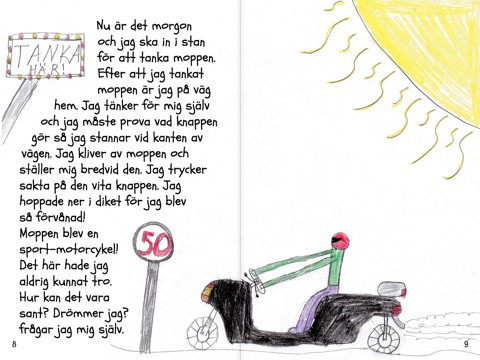 TANKA
HÄR!
Nu är det morgon
och jag ska in i stan
för att tanka moppen.
Efter att jag tankat
moppen är jag på väg
hem. Jag tänker för mig själv
och jag måste prova vad knappen
gör så jag stannar vid kanten av
vägen. Jag kliver av moppen och
ställer mig bredvid den. Jag trycker
sakta på den vita knappen. Jag
hoppade ner i diket för jag blev
så förvånad!
Moppen blev en
sport-motorcykel!
Det här hade jag
aldrig kunnat tro.
Hur kan det vara
sant? Drömmer jag?
frågar jag mig själv.
50
8
9